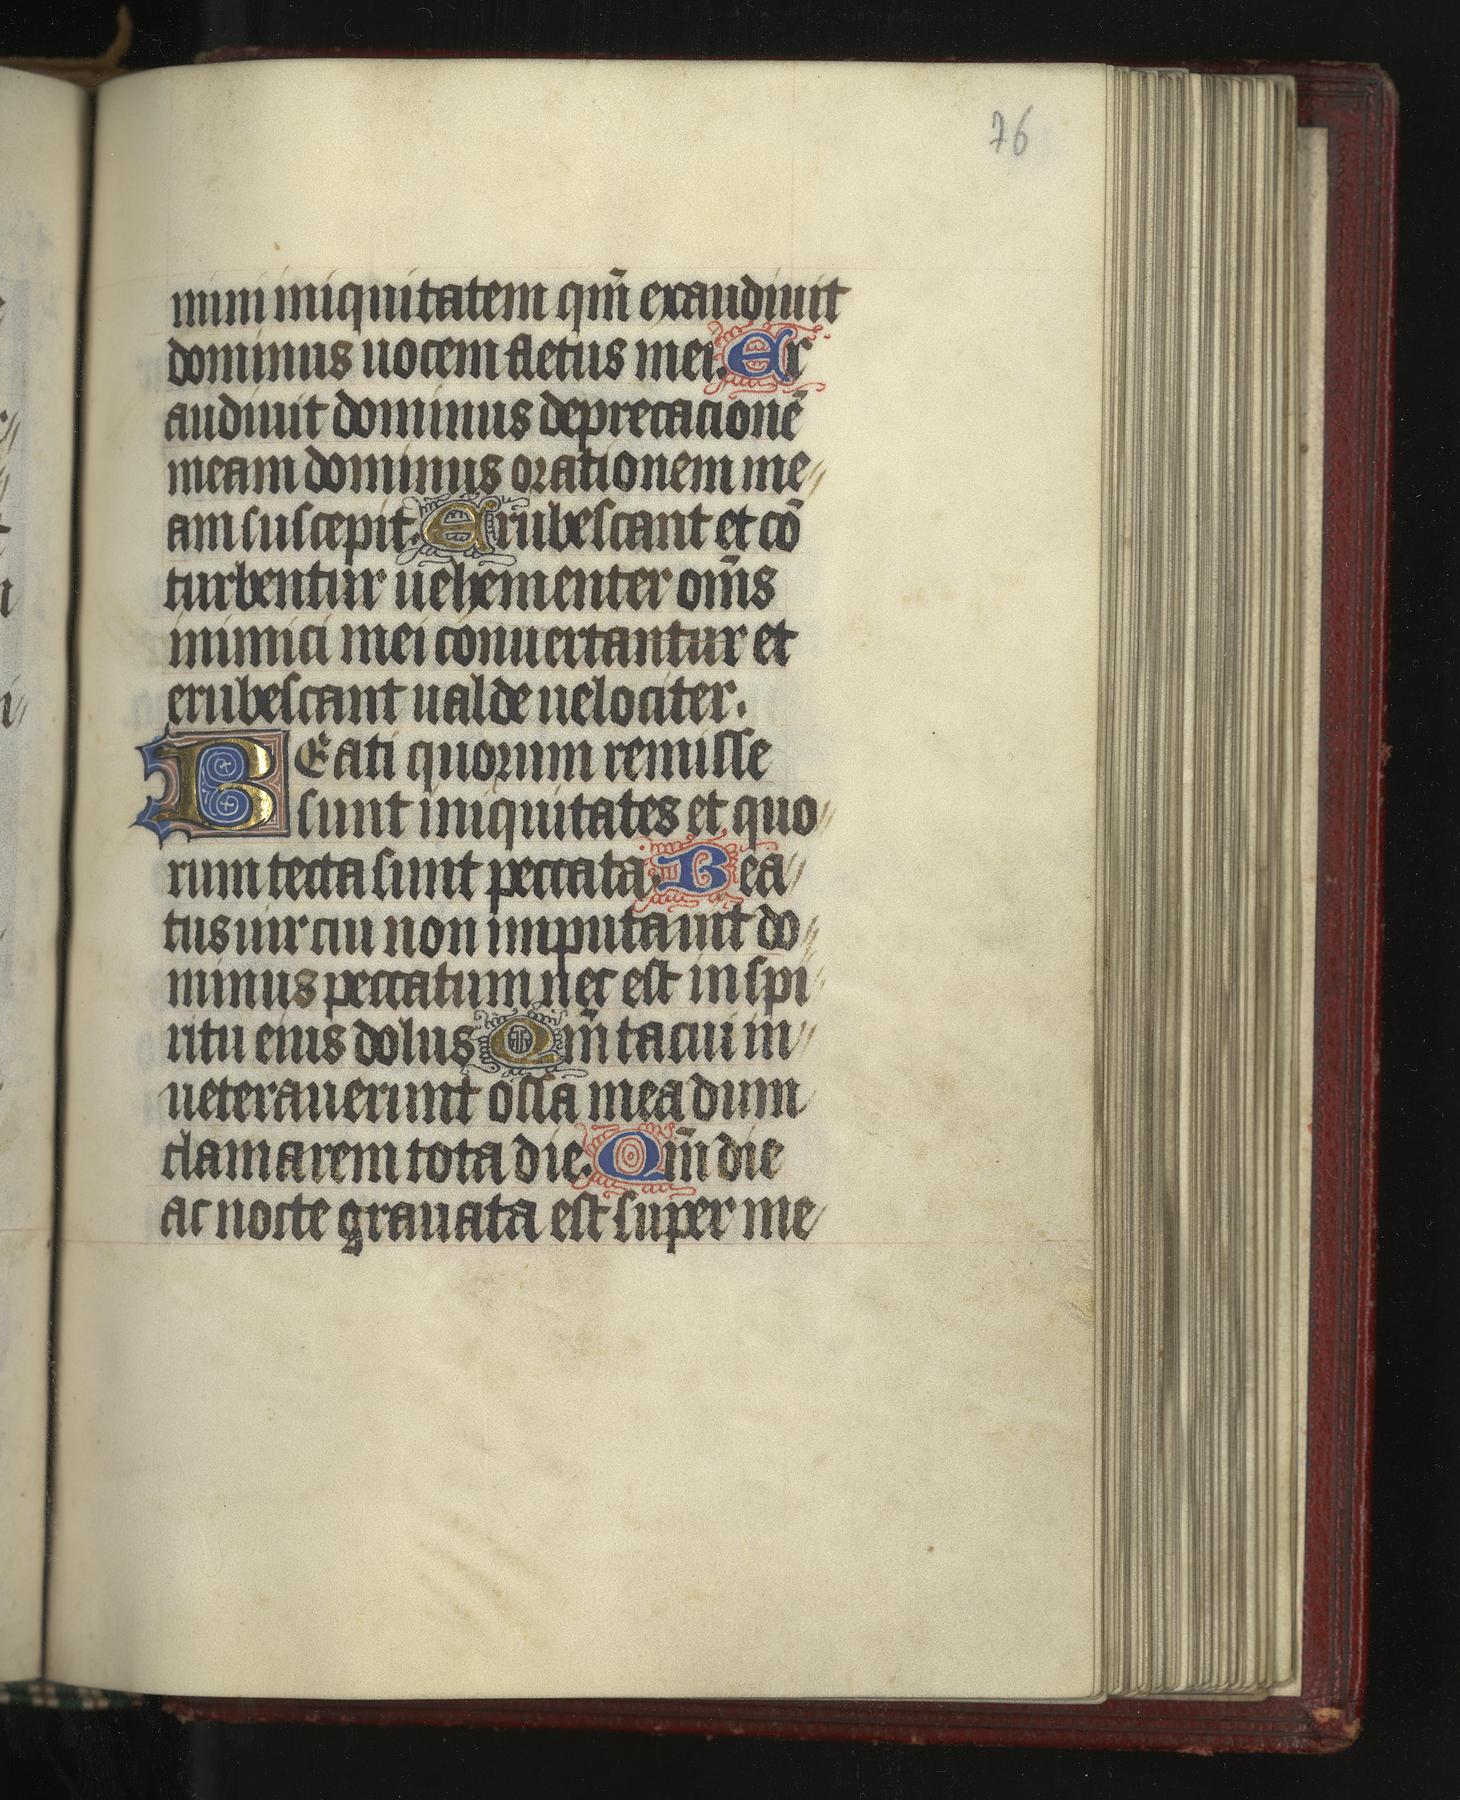 76
mini iniquitatem qm̄ exaudiuit
dominus uocem fletus mei. Ex
audiuit dominus deprecacionē
meam dominus orationem me
am suscepit. Erubescant et cō
turbentur uehementer om̄s
inimici mei conuertantur et
erubescant ualde uelociter.
BEati quorum remisse
sunt iniquitates et quo
rum tecta sunt peccata. Bea
tus uir cui non imputauit do
minus peccatum nec est in spi
ritu eius dolus Qm̄ tacui in
ueterauerunt ossa mea dum
clamarem tota die. Qm̄ die
ac nocte grauata est super me